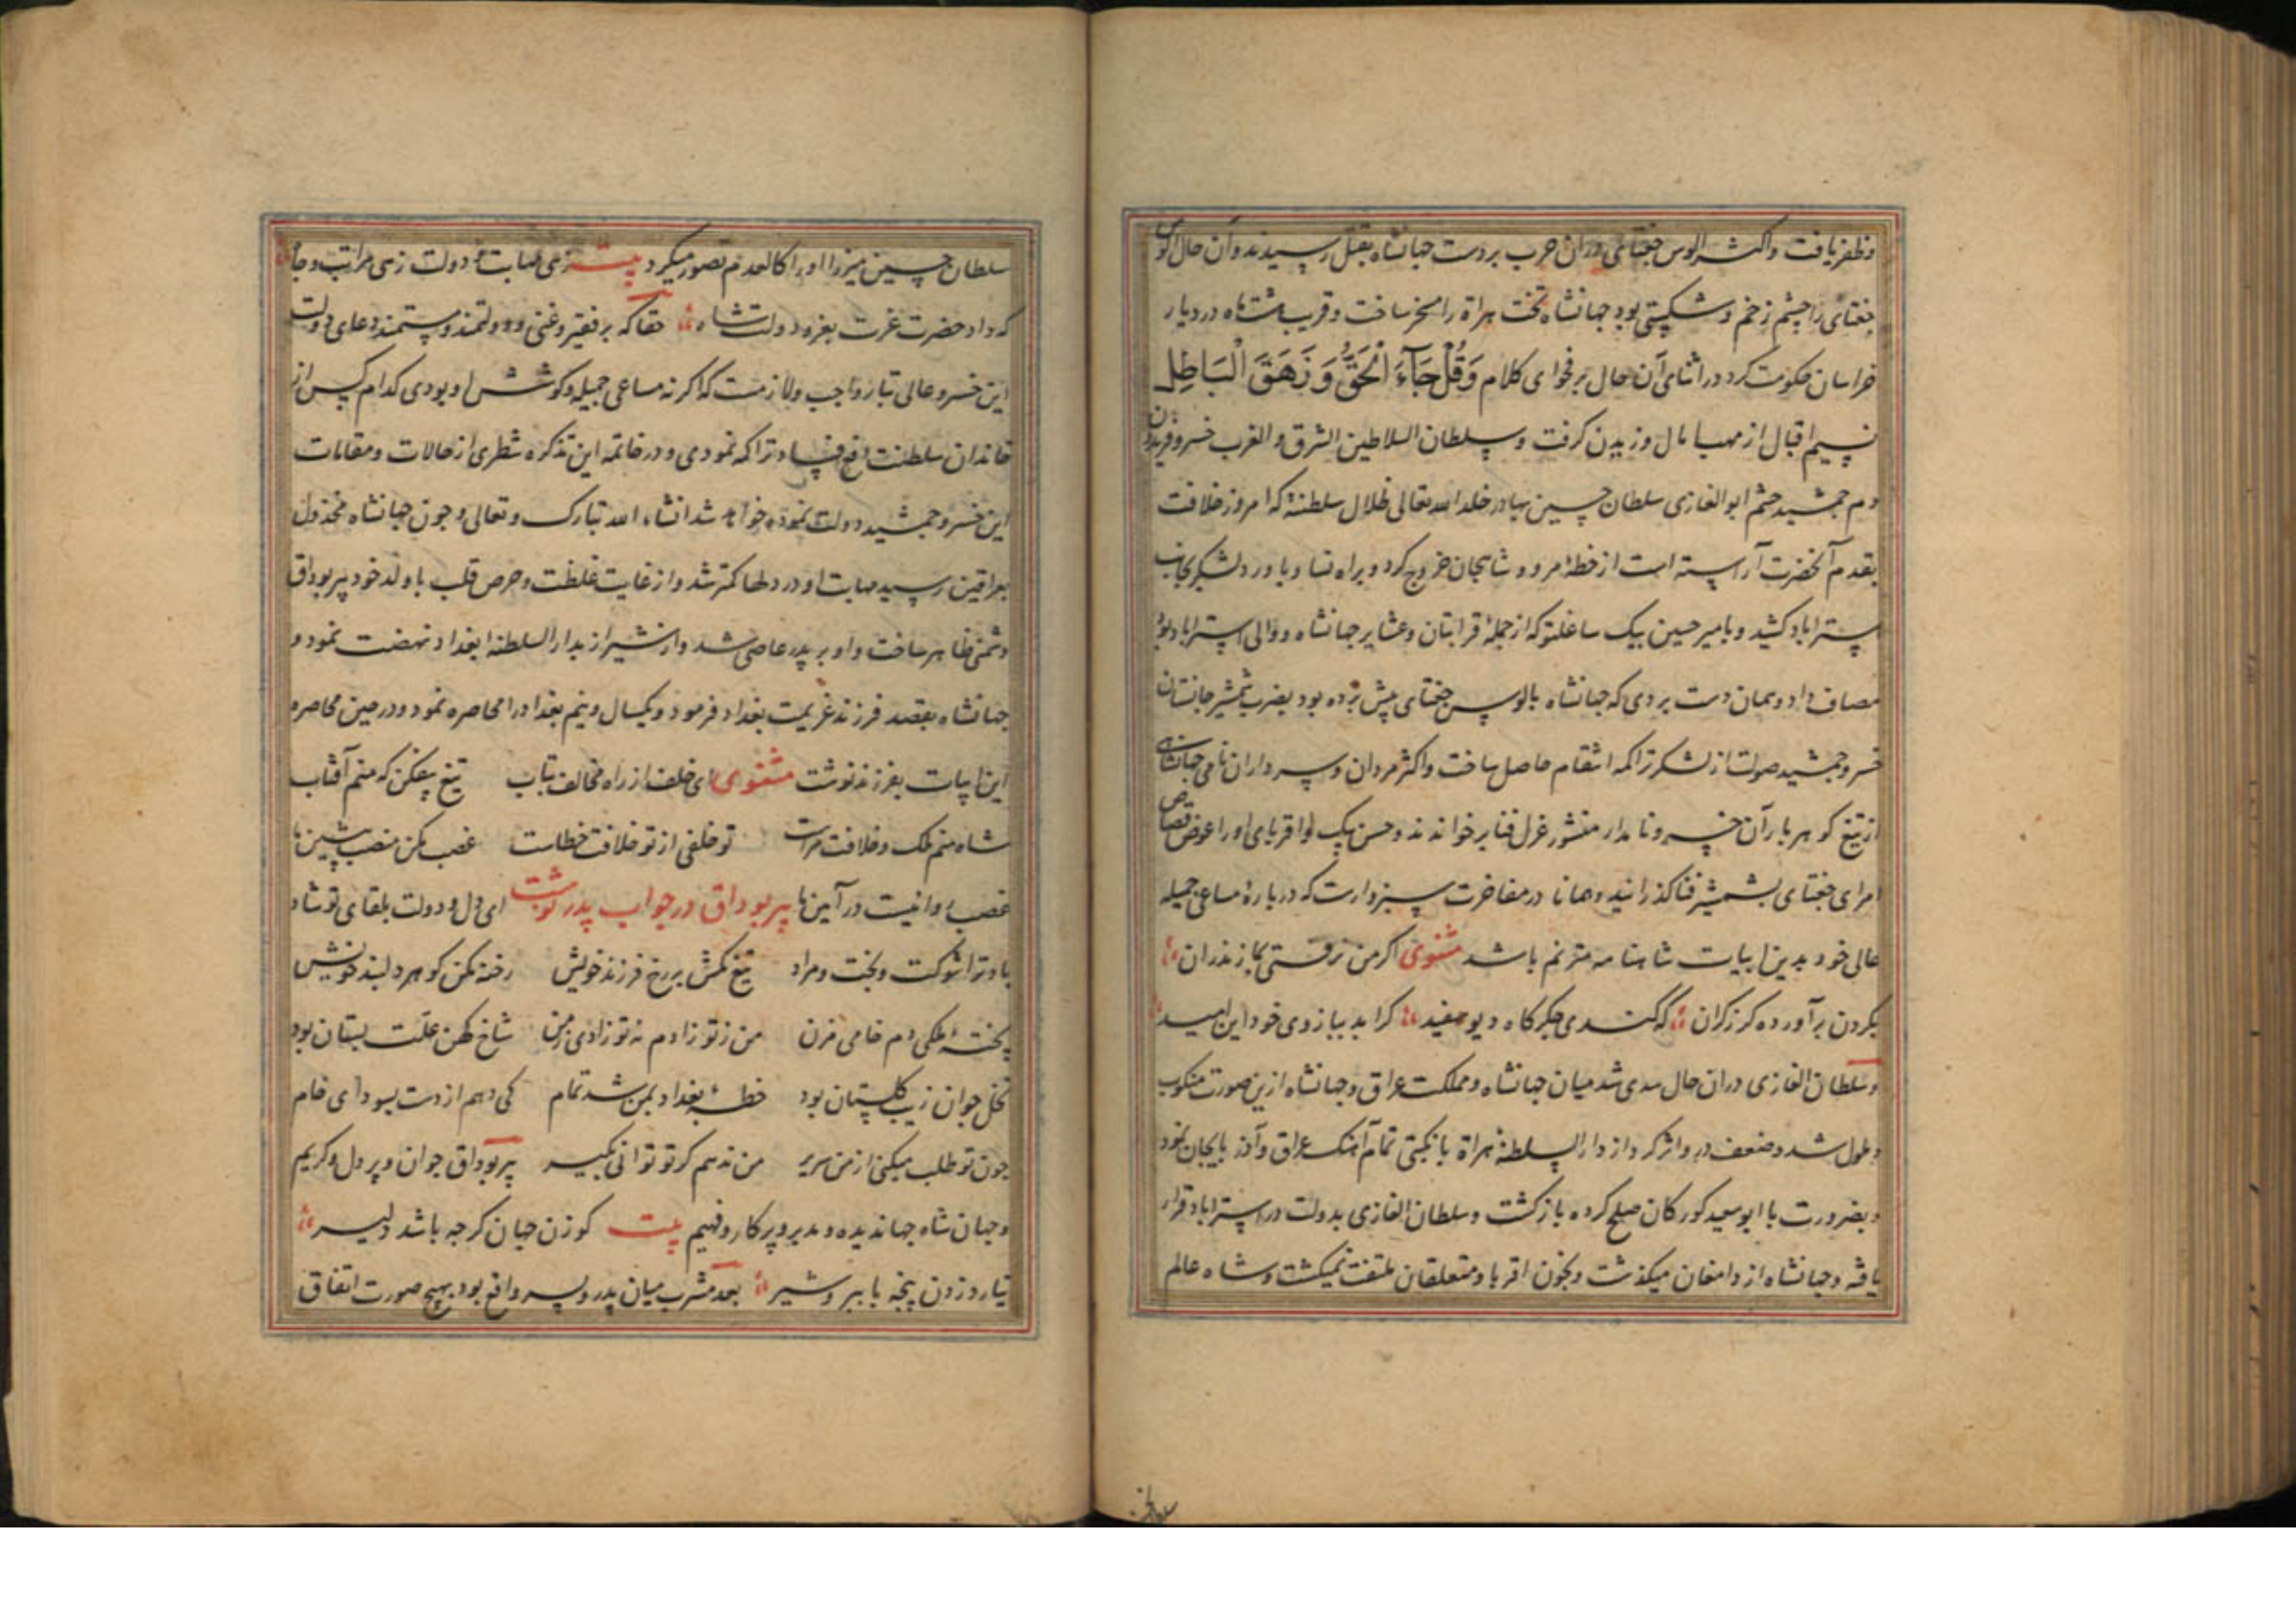 وظفر یافت و اکثر الوس جغتای دران حرب بردست جهانشاه بقتل رسیدند و آن حال الوس
جغتای را چشم زخم و شکستی بود جهانشاه تخت هراة را مسخر ساخت و قریب هشت ماه در دیار
خراسان حکومت کرد در اثنای آن حال بر فحوای کلام وَقُلْ جَآءَ الْحَقُّ وَزَهَقَ الْبَاطِلُ
نسیم اقبال از مهب امال وزیدن کرفت و سلطان السلاطین الشرق و الغرب خسرو فریدون
دم جمشید حشم ابوالغازی سلطان حسین بهادر خلد الله تعالی ظلال سلطنته که امروز خلافت
بقدم آنحضرت آراسته است از خطهٔ مرو و شاهجان خروج کرد و براه نسا و باورد لشکر بجانب
استراباد کشید و بامیر حسین بیک ساعتلو که از جملهٔ قرابتان و عشایر جهانشاه و والی استراباد بود
مصاف داد و همان دست بردی که جهانشاه بالوس جغتای پیش برده بود بضرب شمشیر جانستان
خسرو جمشید صولت از لشکر تراکمه انتقام حاصل ساخت و اکثر مردان و سرداران نامی جهانشاهی
از تیغ کوهربار آن خسرو نامدار منشور عزل فنا برخواندند و حسن بیک و اقربای او را عوض قصاص
امرای جغتای بشمشیر فنا کذرانید و همانا در مفاخرت سزوارست که در بارهٔ مساعی جمیله
عالی خود بدین ابیات شاهنامه مترنم باشد مثنوی اکر من نرفتی بمازندران
بکردن برآورده کرز کران که کندی جکرکاه دیو سفید کرا بد ببازوی خود این امید
و سلطان الغازی دران حال سدی شد میان جهانشاه و مملکت عراق و جهانشاه ازین صورت منکوب
و ملول شد و ضعف در و اثر کرد از دار السلطنهٔ هراة با نکبتی تمام آهنک عراق و آذربایجان نمود
و بضرورت با ابوسعید کورکان صلح کرده بازکشت و سلطان الغازی بدولت در استراباد قرار
یافته و جهانشاه از دامغان میکذشت و بخون اقربا و متعلقان ملتفت نمیکشت و شاه عالم
سلطان حسین میرزا او را کالعدم تصور میکرد بیت زهی مهابت و دولت زهی مراتب و جاه
که داد حضرت عزت بعز و دولت شاه حقا که بر فقیر و غنی و دولتمند و مستمند دعای دولت
این خسرو عالی تبار واجب و لازمست که اکر نه مساعی جمیله و کوشش او بودی کدام کس از
خاندان سلطنت دفع فساد تراکمه نمودی و در خاتمه این تذکره شطری از حالات و مقامات
این خسرو جمشید دولت نموده خواهد شد انشاء الله تبارک و تعالی و چون جهانشاه مخذول
بعراقین رسید مهابت او در دلها کمتر شد و از غایت غلظت و حرص قلب با ولد خود پیربوداق
دشمنی ظاهر ساخت و او بر پدر عاصی شد و از شیراز بدار السلطنهٔ بغداد نهضت نمود و
جهانشاه بقصد فرزند عزیمت بغداد فرمود و یکسال و نیم بغداد را محاصره نمود و در حین محاصره
این ابیات بفرزند نوشت مثنوی ای خلف از راه مخالف بتاب تیغ بیفکن که منم آفتاب
شاه منم ملک و خلافت مراست تو خلفی از تو خلافت خطاست غصب مکن منصب پیشین ما
غصب روا نیست در آیین ما پیربوداق در جواب پدر نوشت ای دل و دولت بلقای تو شاد
باد ترا شوکت و بخت و مراد تیغ مکش بر رخ فرزند خویش رخنه مکن کوهر دلبند خویش
پختهٔ ملکی دم خامی مزن من ز تو زادم نه تو زادی ز من شاخ کهن علت بستان بود
نخل جوان زیب کلستان بود خطهٔ بغداد بمن شد تمام کی دهم از دست بسودای خام
چون تو طلب میکنی از من سریر من ندهم کر تو توانی بکیر پیربوداق جوان و پردل و کریم
و جهان شاه جهاندیده و مدبر و پرکار و فهیم بیت کوزن جهان کرجه باشد دلیر
نیارد زدن پنجه با ببر و شیر بعد مشرب میان پدر و پسر واقع بود بهیچ صورت اتفاق
سلطان